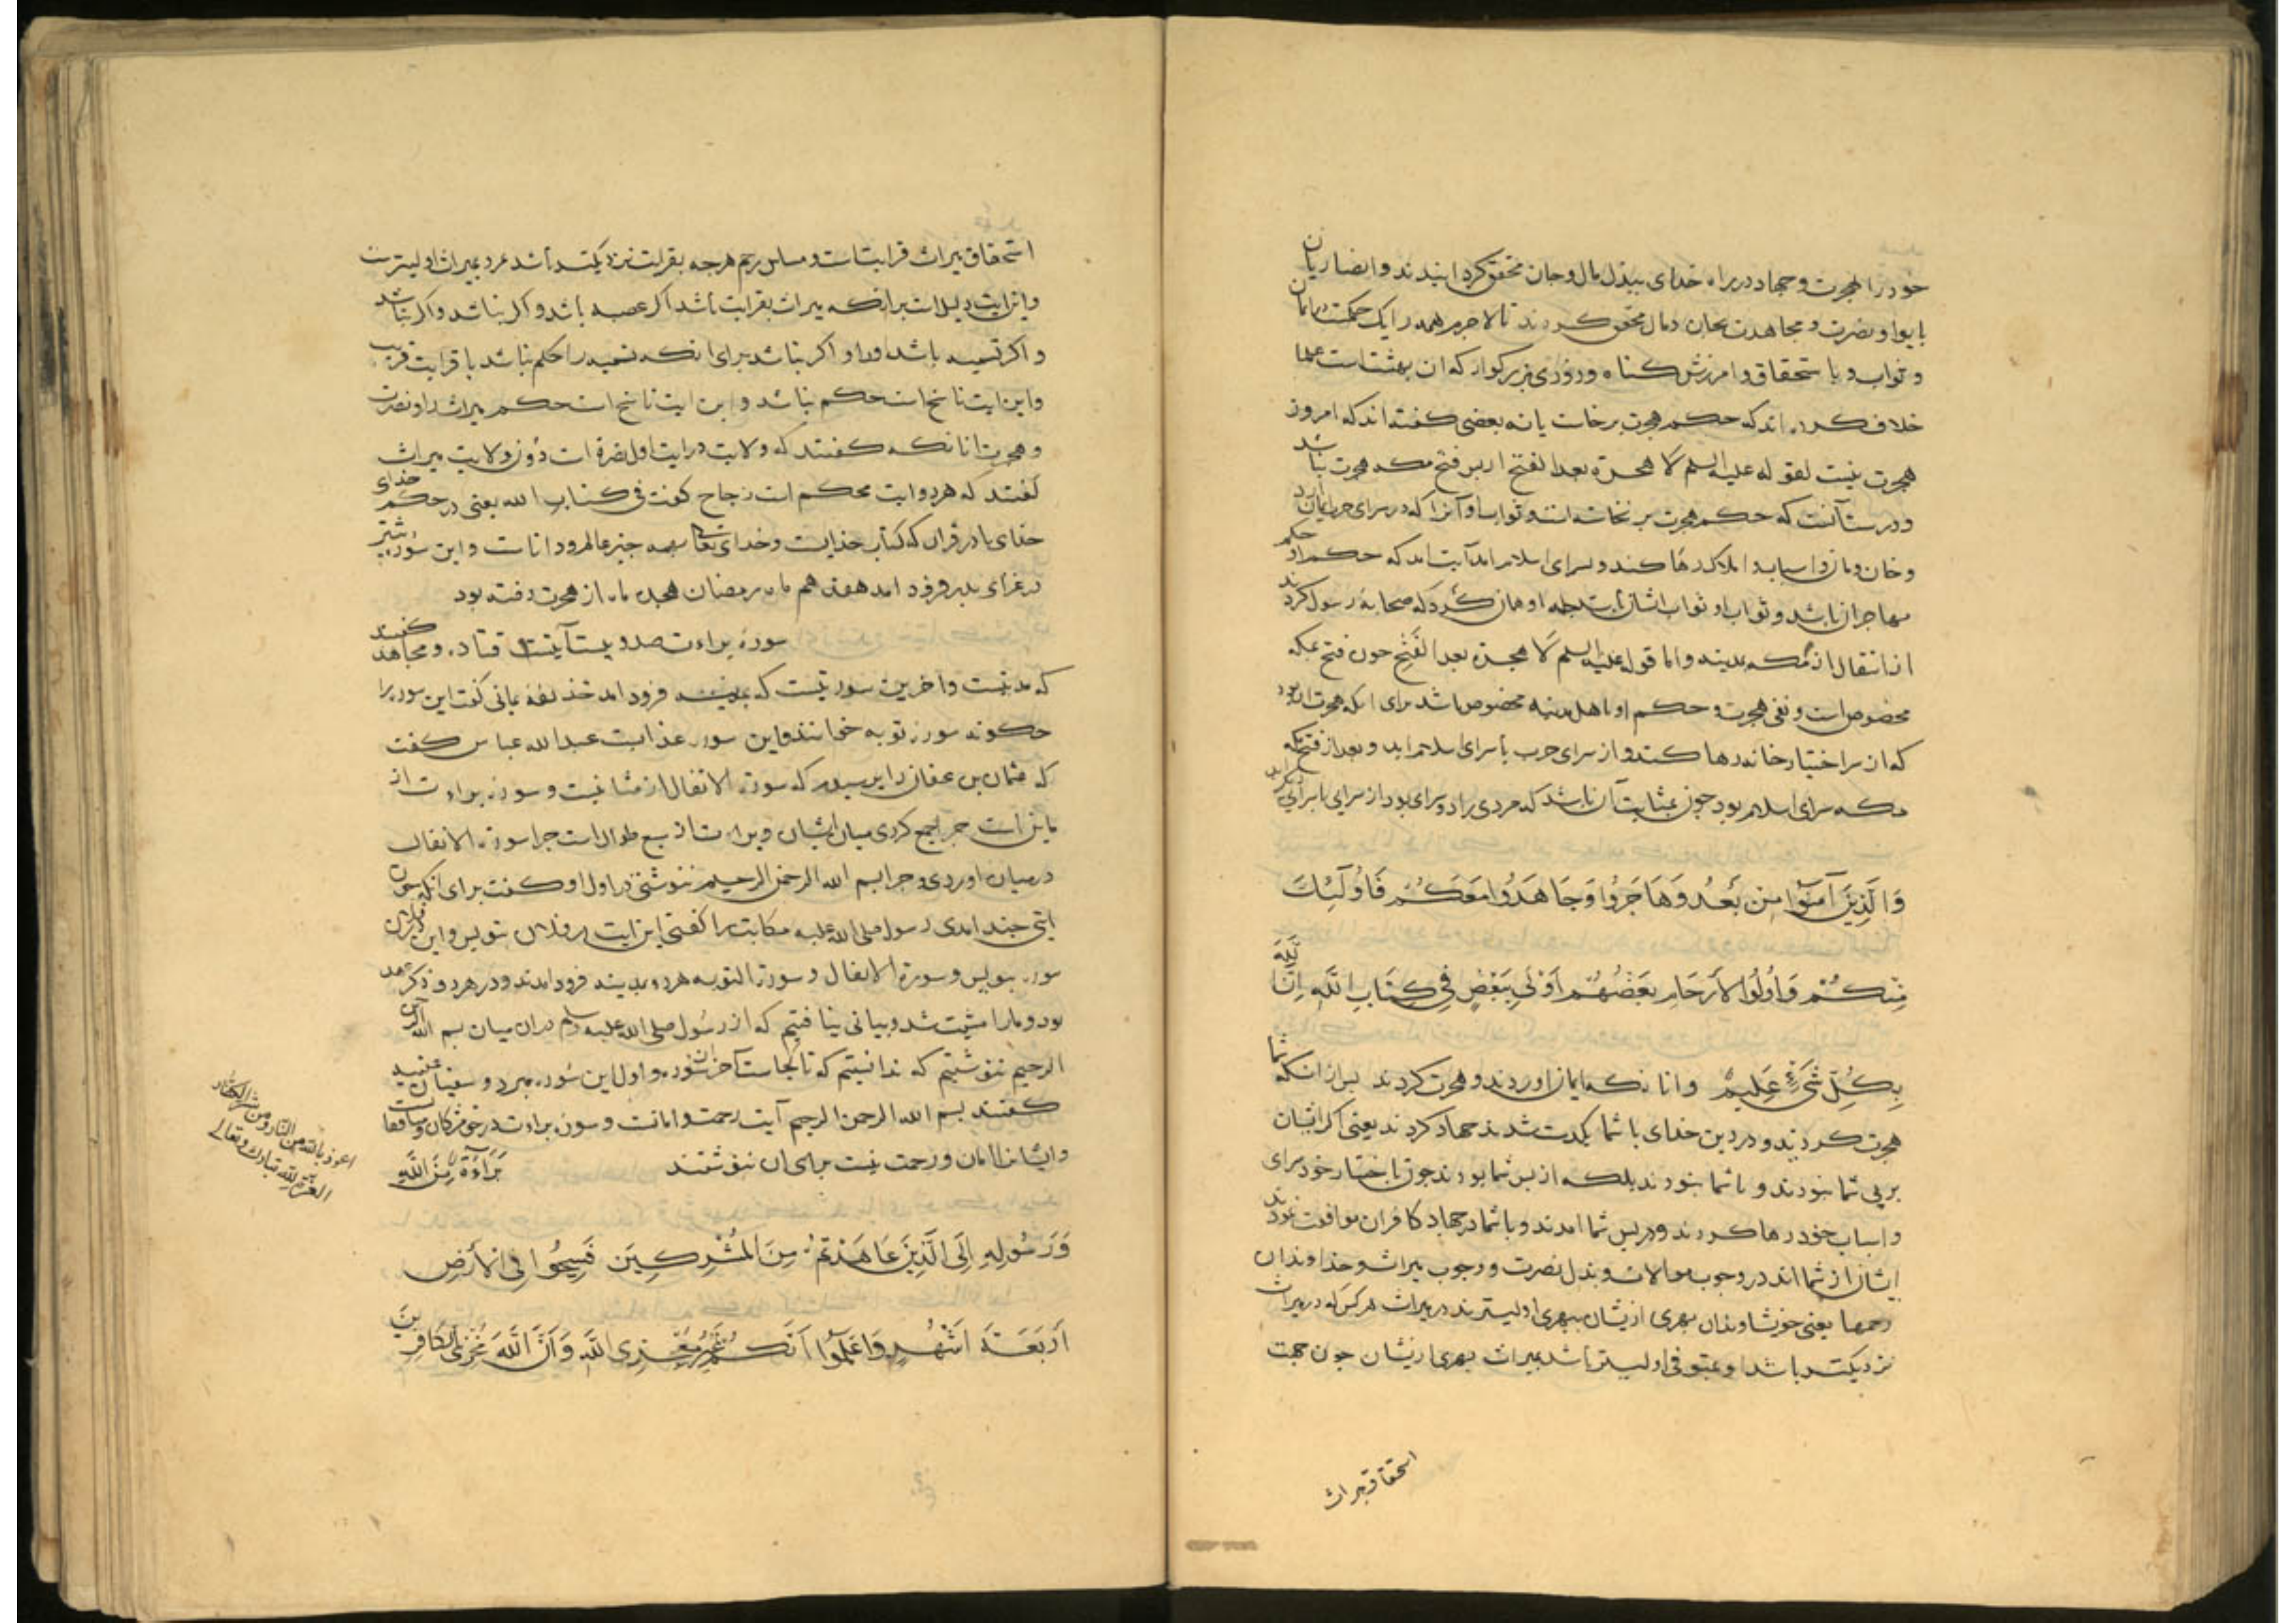 خود را بهجرت و جهاد در راه خدای ببذل مال و جان محقق کردانیدند و انصاریان
بایوا و نصرت و مجاهدت بجان و مال محقق کردند تا لاجرم همه را یک حکمت در ایمان
و ثواب و با ستحقاق و امرزش کناه و روزی بزرکوار که ان بهشت است علما
خلاف کرده اند که حکم هجرت برخاست یا نه بعضی کفته اند که امروز
هجرت نیست لقوله علیه السلم لا هجرة بعد الفتح از پس فتح مکه هجرت نباشد
و درست آنست که حکم هجرت بر نخاسته است و ثواب او آنرا که در سرای حرب ایمان ارد
و خان و مان و اسباب و املاک رها کند و بسرای اسلام اید آیت امد که حکم او حکم
مهاجران باشد و ثواب او ثواب ایشان او همان کرد که صحابه رسول کردند
از انتقال از مکه بمدینه و اما قوله علیه السلم لا هجرة بعد الفتح چون فتح مکه
مخصوص است و نفی هجرت و حکم او با اهل مدینه مخصوص باشد برای انکه هجرت ان بود
که ان سرا ختیار خانه رها کنند و از سرای حرب با سرای اسلام اید و بعد از فتح مکه
مکه سرای اسلام بود چون بمثابت آن باشد که مردی را دو سرای بود از سرای با سرای دیگر اید
وَالَّذِینَ آمَنُوا مِن بَعْدُ وَهَاجَرُوا وَجَاهَدُوا مَعَكُمْ فَأُولَئِكَ
مِنكُمْ وَأُولُوا الأَرْحَامِ بَعْضُهُمْ أَوْلَى بِبَعْضٍ فِی كِتَابِ اللَّهِ إِنَّ اللَّهَ
بِكُلِّ شَیْءٍ عَلِیمٌ وانا نکه ایمان اوردند و هجرت کردند پس از انکه شما
هجرت کردند و در دین خدای با شما یکدست شدند جهاد کردند یعنی اکر ایشان
بر پی شما نبودند و با شما نبودند بلکه از پس شما بودند چون با ختیار خود سرای
و اسباب خود رها کردند و در پس شما امدند و با شما در جهاد کافران موافقت نمودند
ایشان از شما اند در وجوب موالات و بذل نصرت و وجوب میراث و خداوندان
رحمها یعنی خویشاوندان بهری از یشان ببهری اولیترند در میراث هر کس که در میراث
نزدیکتر باشد او اولیتر باشد بمیراث بهری از یشان چون جهت
استحقاق میراث
استحقاق میراث قرابتست و مساس رحم هرچه بقرابت نزدیکتر باشد مرد بمیراث اولیترست
واین ایت دلیلست برانکه میراث بقرابت باشد اکر عصبه باشد و اکر نباشد و اکر نباشد
و اکر تسمیه باشد او را و اکر نباشد برای انکه تسمیه را حکم نباشد با قرابت قریب
واین ایت ناسخ است حکم نباشد و این ایت ناسخ است حکم میراث را و نصرت
و هجرت انا نکه کفتند که ولایت در ایت اول نصرة است دون ولایت میراث
کفتند که هر دو ایت محکم است زجاج کفت فی کتاب الله یعنی در حکم خدای
خدای یا در قران که کتاب خدایست و خدای تعالی بهمه چیز عالم و داناست و این سوره بیشتر
در غزای بدر فرود امد هفدهم ماه رمضان هجده ماه از هجرت رفته بود
سورة براءت صد و بیست آیتست قتاده و مجاهد کفتند
که مدنیست و اخرین سورتیست که بمدینه فرود امد حذیفه یمانی کفت این سوره را
چکونه سورة توبه خوانند و این سوره عذابست عبد الله عباس کفت
که عثمان بن عفان را پرسیدم که سورة الانفال از مثانیست و سورة براءت از
مایین است چرا جمع کردی میان ایشان و براءت از سبع طوال است چرا سورة الانفال
در میان اوردی و چرا بسم الله الرحمن الرحیم ننوشتی در اول او کفت برای انکه چون
ایتی چند امدی رسول صلی الله علیه مکاتب را کفتی این ایت در فلان بنویس و این در فلان
سوره بنویس و سورة الانفال و سورة التوبه هر دو بمدینه فرود امدند و در هر دو ذکر عهد
بود و مارا مشیت شد و بیانی نیافتیم که از رسول صلی الله علیه وسلم دران میان بسم الله الرحمن
الرحیم ننوشتیم که ندانستیم که تا کجاست آخر ان سوره و اول این سوره مبرد و سفیان عیینه
کفتند بسم الله الرحمن الرحیم آیت رحمت و امانست و سوره براءت در حق مشرکان و منافقان است
و ایشانرا امان و رحمت نیست برای ان ننوشتند بَرَاءَةٌ مِنَ اللَّهِ
وَرَسُولِهِ إِلَى الَّذِینَ عَاهَدْتُمْ مِنَ الْمُشْرِكِینَ فَسِیحُوا فِی الْأَرْضِ
أَرْبَعَةَ أَشْهُرٍ وَاعْلَمُوا أَنَّكُمْ غَیْرُ مُعْجِزِی اللَّهِ وَأَنَّ اللَّهَ مُخْزِی الْكَافِرِینَ
اعوذ بالله من النار ومن شر الکفار
العزة لله تبارک وتعالی